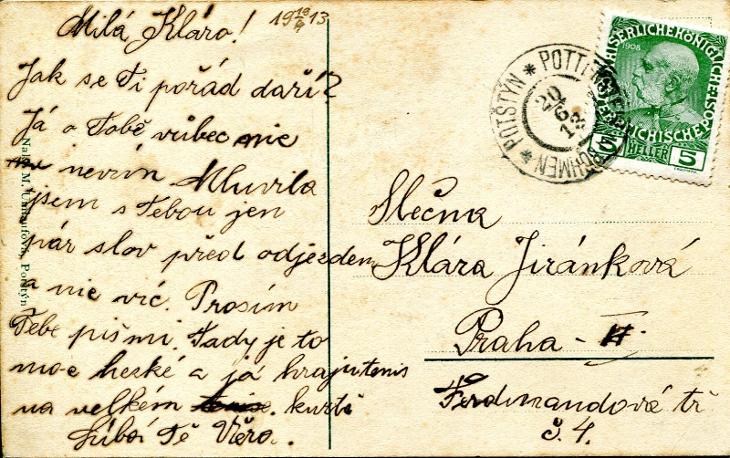 Milá Kláro! 19 19/6 13
Jak se Ti pořád daří?
Já o Tobě vůbec nic
nevím Mluvila
jsem s Tebou jen
pár slov před odjezdem
a nic víc. Prosím
Tebe pišmi. Tady je to
moc heské a já hraju tenis
na velkém kurtě
Líbá Tě Věra.
Nakl. M. Umlaufová, Potštýn
* POTTENSTEIN BÖHMEN * POTŠTÝN
20
6
13
KAISERLICHE KÖNIGLICHE ÖSTERREICHISCHE POST
1908
5 HELLER 5
Slečna
Klára Jiránková
Praha - II
Ferdinandové tř
č. 4.